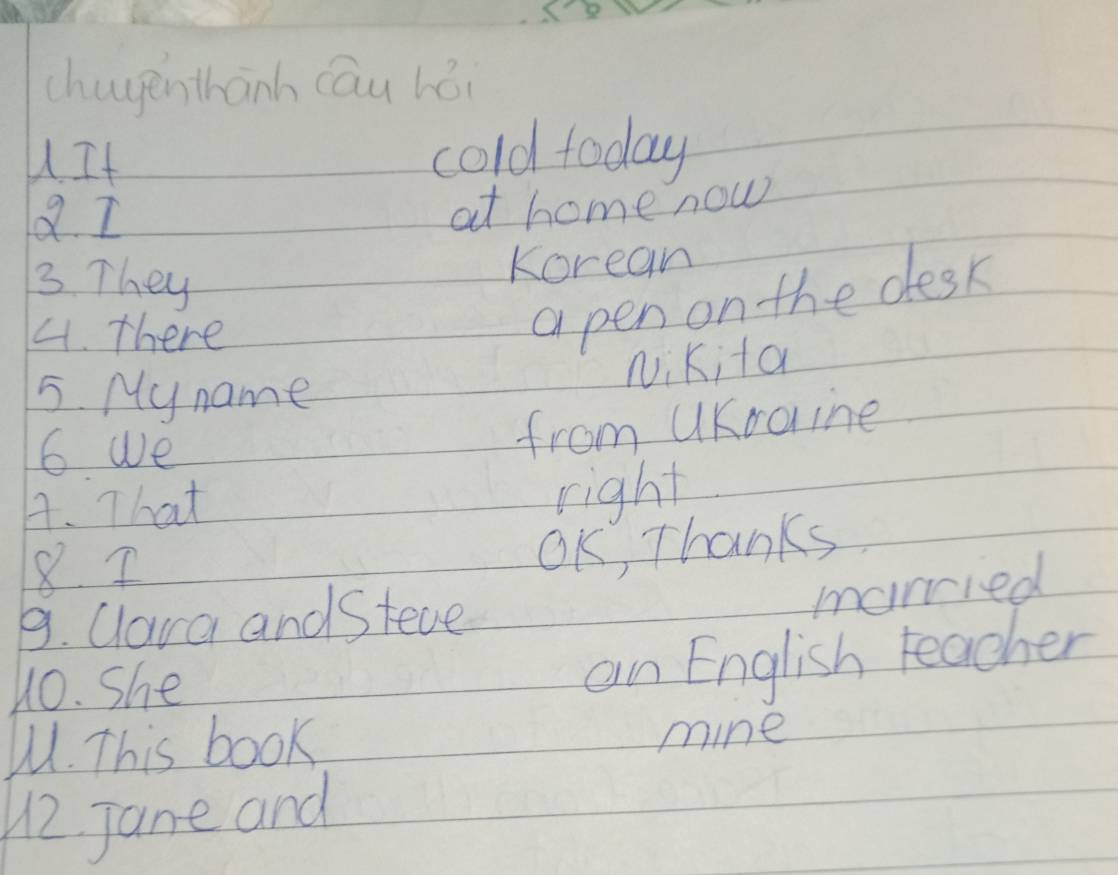 chuyển thành câu hỏi
1. It cold today
2. I at home now
3. They Korean
4. there a pen on the desk
5. My name Nikita
6 We from Ukraine
7. That right
8. I OK, Thanks.
9. Clara and Steve married
10. She an English teacher
11. This book mine
12. Jane and